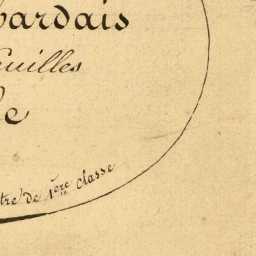 bardais
euilles
le
tre de 1ère classe